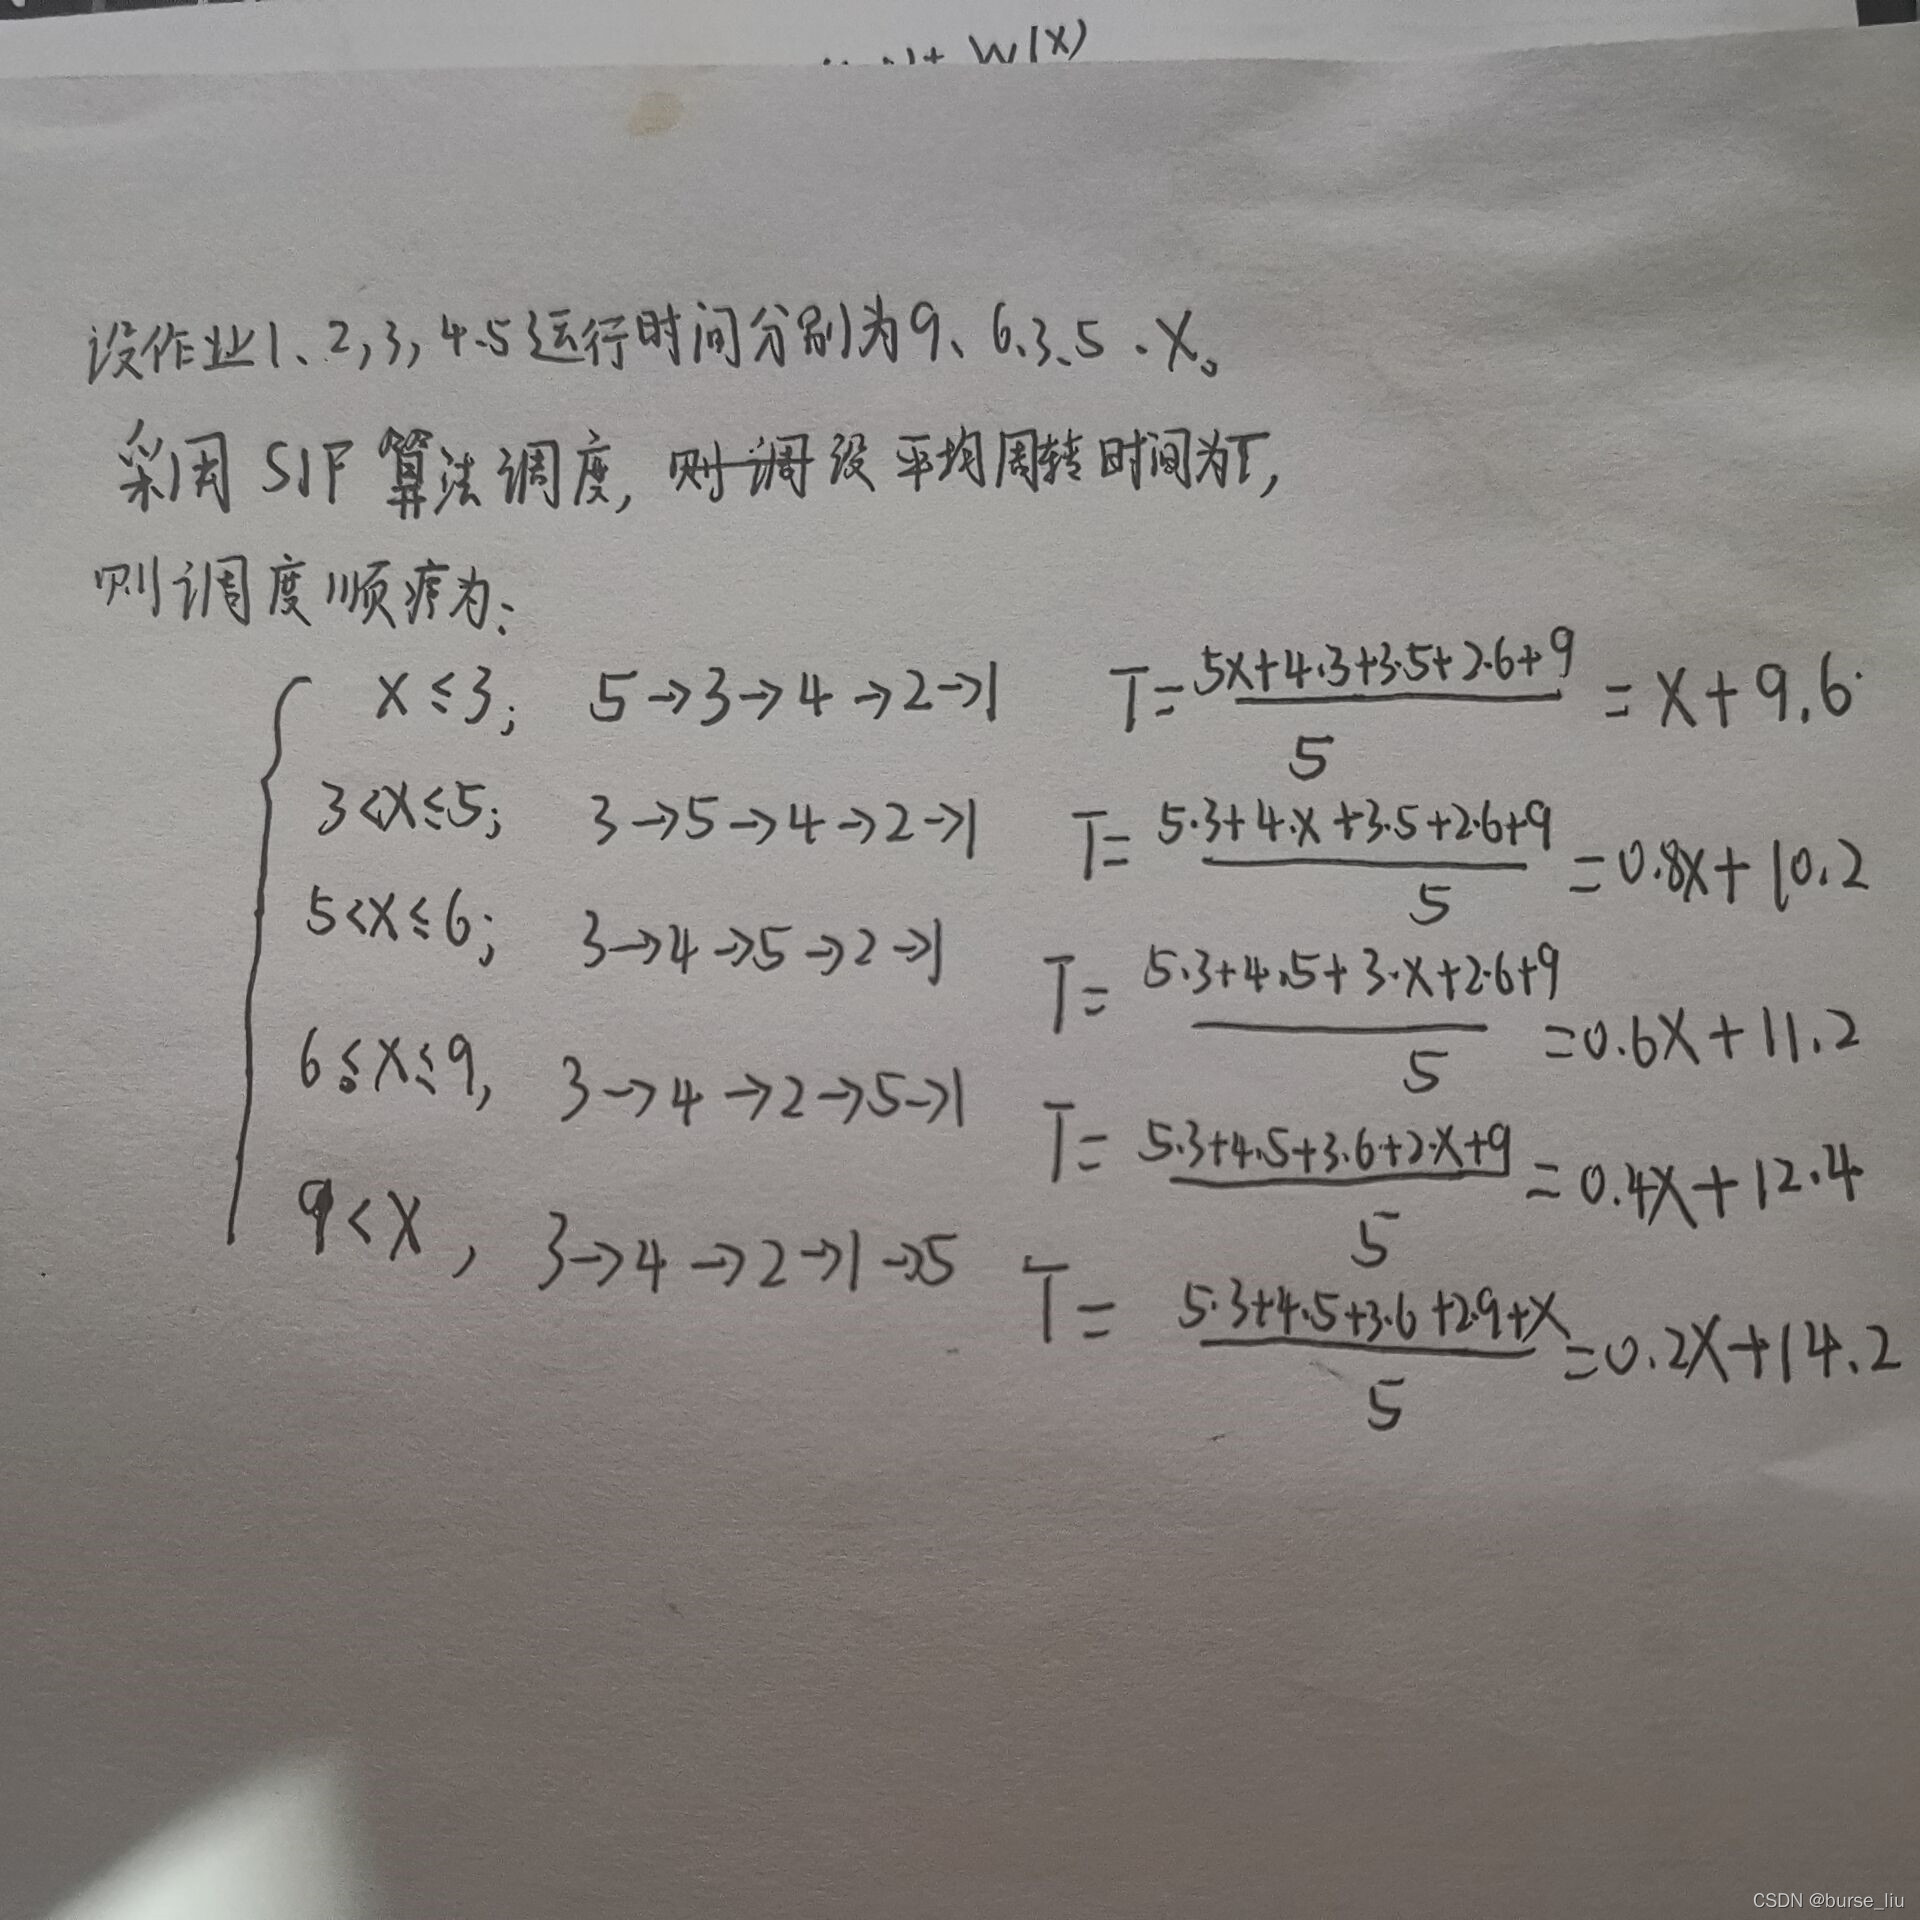 W(x)
设作业1、2,3,4.5运行时间分别为9、6.3、5、X。
采用SJF算法调度,则调设平均周转时间为T,
则调度顺序为:
x≤3; 5→3→4→2→1 T=(5x+4·3+3·5+2·6+9)/5=x+9.6
3<x≤5; 3→5→4→2→1 T=(5·3+4·x+3·5+2·6+9)/5=0.8x+10.2
5<x≤6; 3→4→5→2→1 T=(5·3+4·5+3·x+2·6+9)/5=0.6x+11.2
6≤x≤9, 3→4→2→5→1 T=(5·3+4·5+3·6+2·x+9)/5=0.4x+12.4
9<x, 3→4→2→1→5 T=(5·3+4·5+3·6+2·9+x)/5=0.2x+14.2
CSDN @burse_liu